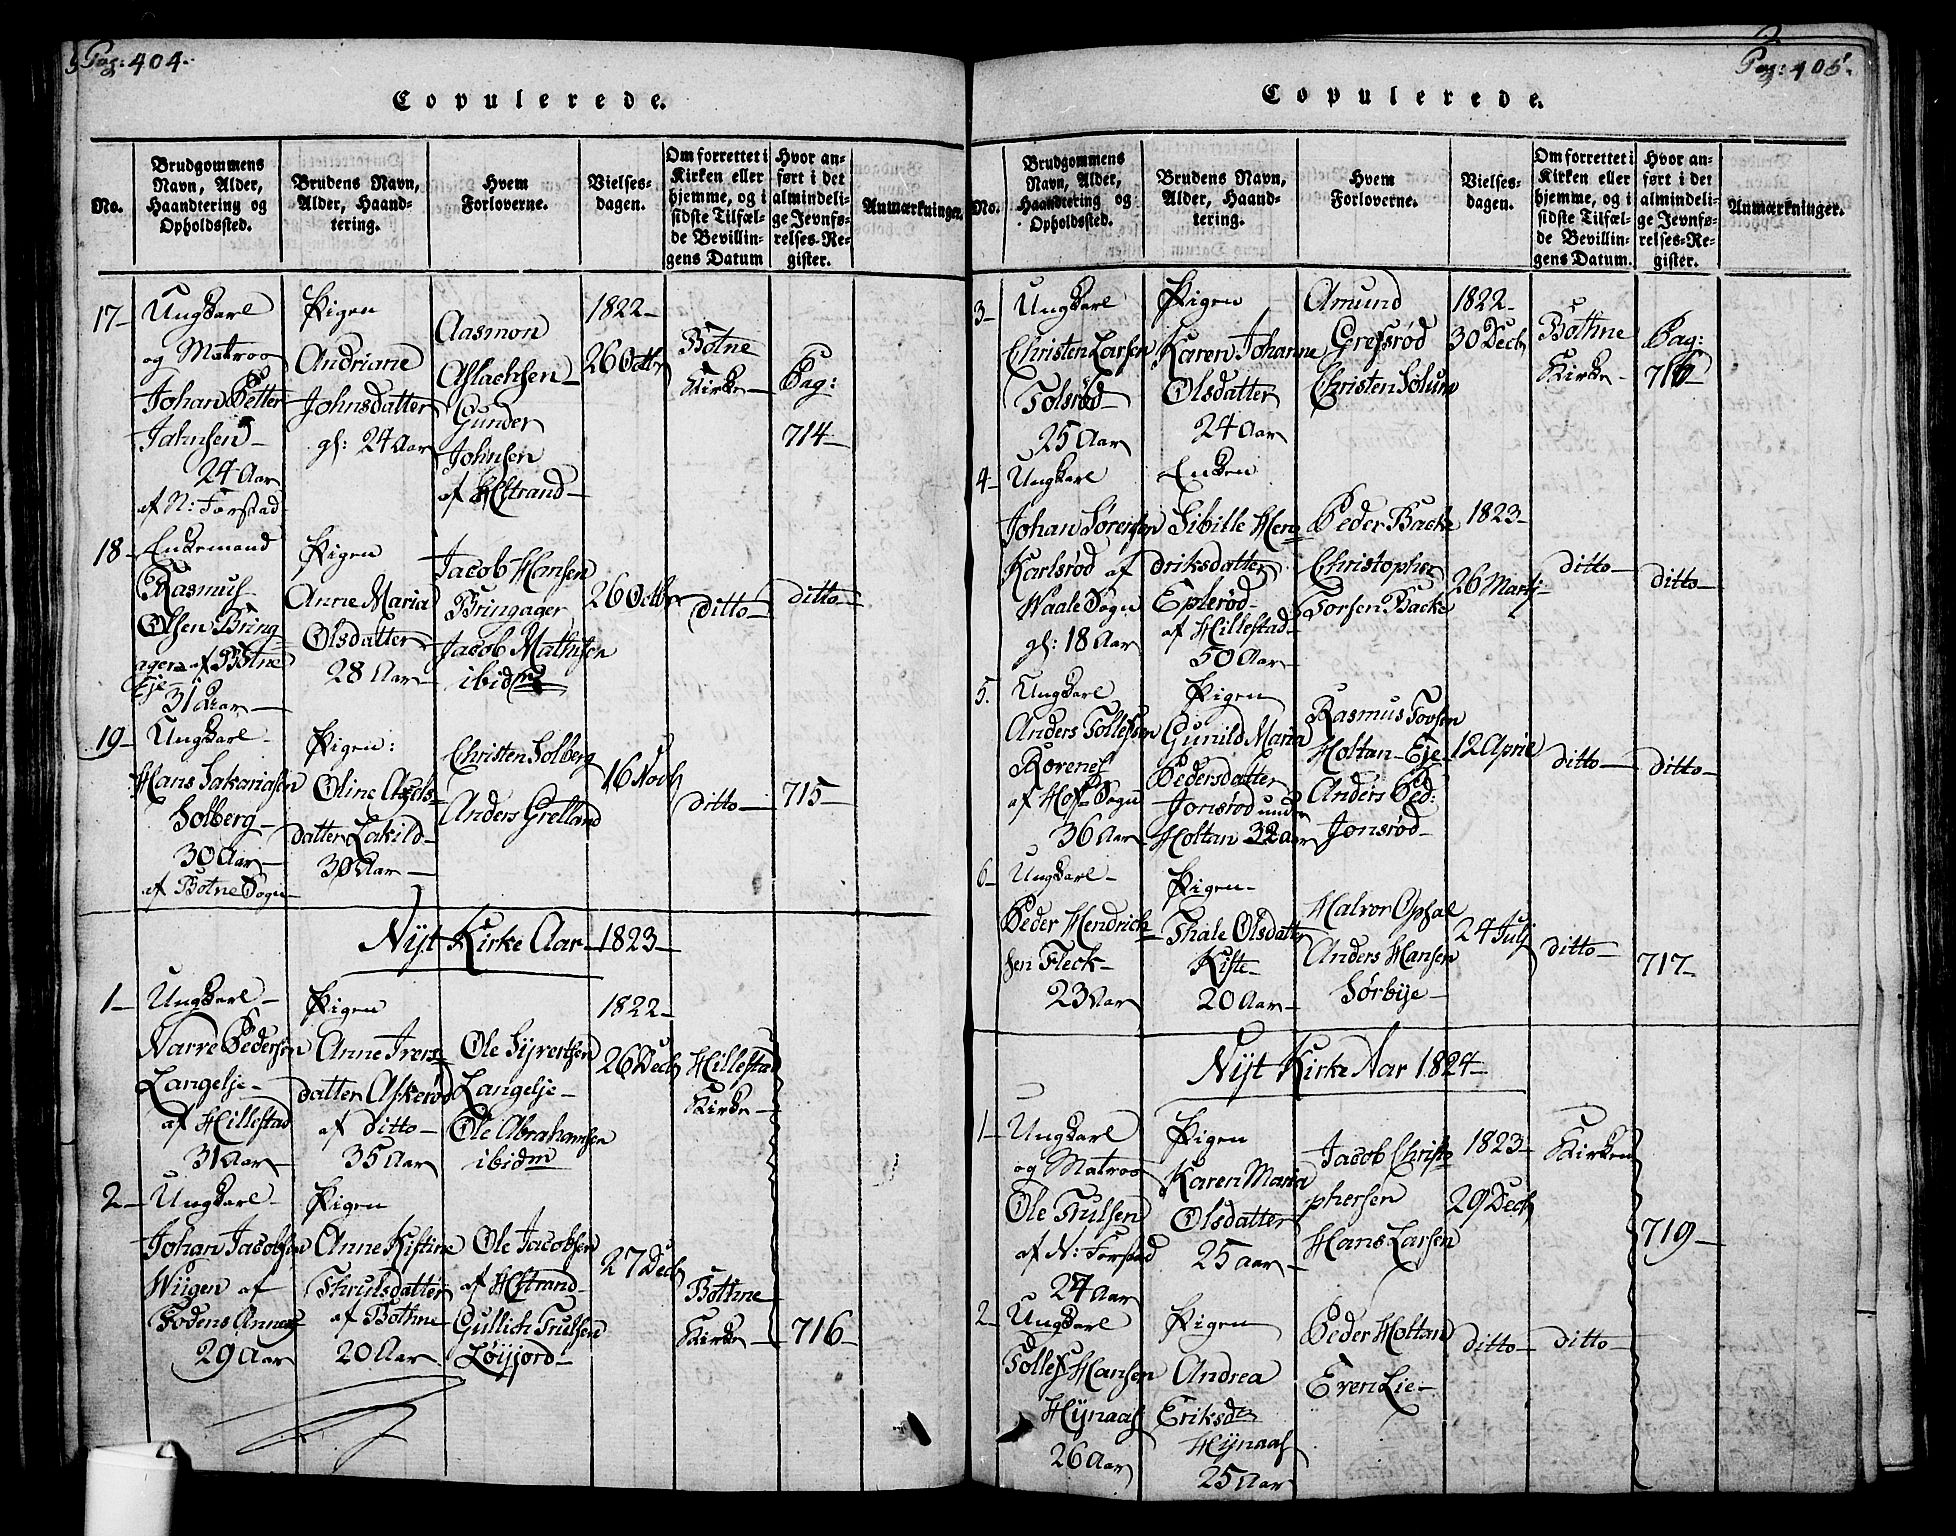 Pag: 404.
Copulerede.
No.
Brudgommens Navn, Alder, Haandtering og Opholdssted.
Brudens Navn, Alder, Haandtering.
Hvem Forloverne.
Vielsesdagen.
Om forrettet i Kirken eller hjemme, og i sidste Tilfælde Bevillingens Datum
Hvor anført i det almindelige Jevnførelses-Register.
Anmærkninger.
17-
Ungkarl
og Matros
Johan Petter
Jahnsen-
24 Aar
af N: Forstad
Pigen
Andriane
Johnsdatter
gl: 24 Aar
Aasmon
Aslachsen-
Gunder
Johnsen
af HStrand-
1822-
26 Octbr
Botne
Kirke-
Pag:
714-
18-
Enkemand
Rasmus-
Olsen Bring-
ager af Botne
Eje
31 Aar-
Pigen
Anne Maria
Olsdatter
28 Aar-
Jacob Hansen
Bringager
Jacob Mathisen
ibidm
26 Octbr
ditto-
ditto-
19-
Ungkarl-
Hans Sakariasen
Solberg-
30 Aar-
af Botne Sogn-
Pigen:
Oline Axels-
datter Lakild-
30 Aar-
Christen Solberg
Anders Grelland
16 Novb
ditto-
715-
Nÿt Kirke Aar-1823-
1-
Ungkarl-
Narve Pedersen
Langelje-
af Hillestad
31 Aar-
Pigen
Anne Ivers-
datter Askerød
af ditto-
35 Aar
Ole Syvertsen
Langelje-
Ole Abrahamsen
ibidm
1822-
26 Decb
Hillestad
Kirke-
2-
Ungkarl-
Johan Jacobsen
Wiigen af
Sodens Annex
29 Aar
Pigen
Anne Kistine
Thrulsdatter
af Bothne
20 Aar
Ole Jacobsen
af HStrand-
Gullich Trulsen
Löijjord-
27 Decb
Bothne
Kirke-
716-
Pag: 405.
Copulerede.
No.
Brudgommens Navn, Alder, Haandtering og Opholdssted.
Brudens Navn, Alder, Haandtering.
Hvem Forloverne.
Vielsesdagen.
Om forrettet i Kirken eller hjemme, og i sidste Tilfælde Bevillingens Datum.
Hvor anført i det almindelige Jevnførelses-Register.
Anmærkninger.
3-
Ungkarl
Christen Larsen
Tolsrød-
25 Aar
Pigen
Karen Johanne
Olsdatter
24 Aar
Amund
Grefsrød
Christen Solum
1822-
30 Decb
Bothne
Kirke-
Pag:
716-
4-
Ungkarl
Johan Sørensen
Karlsrød af
Waale Sogn
gl: 18 Aar
Enken
Sibille Hen-
driksdatter
Eplerød-
af Hillestad-
50 Aar-
Peder Backe
Christopher
Torsen Backe
1823-
26 Martj-
ditto-
ditto-
5.
Ungkarl
Anders Tollefsen
Rorenes
af Hofs Sogn
36 Aar
Pigen
Gunild Maria
Pedersdatter
Jonsrød under
Holtan 32 Aar
Rasmus Tovsen
Holtan-Eje-
Anders Ped:
Jonsrød-
12 April
ditto-
ditto-
6-
Ungkarl-
Peder Hendrich-
sen Fleck-
23 Aar
Pigen-
Thale Olsdatter
Kiste-
20 Aar-
Halvor Opsal
Anders Hansen
Sørbije-
24 Julj
ditto-
717-
Nÿt Kirke Aar 1824-
1-
Ungkarl
og Matros
Ole Trulsen
af N: Forstad
24 Aar
Pigen
Karen Maria
Olsdatter
25 Aar-
Jacob Christo-
phersen
Hans Larsen
1823-
29 Decb
Kirken
719-
2-
Ungkarl
Tollef Hansen
Hÿnaas
26 Aar
Pigen
Andrea
Eriksdr
Hÿnaas
25 Aar
Peder Holtan
Even Lie-
ditto-
ditto-